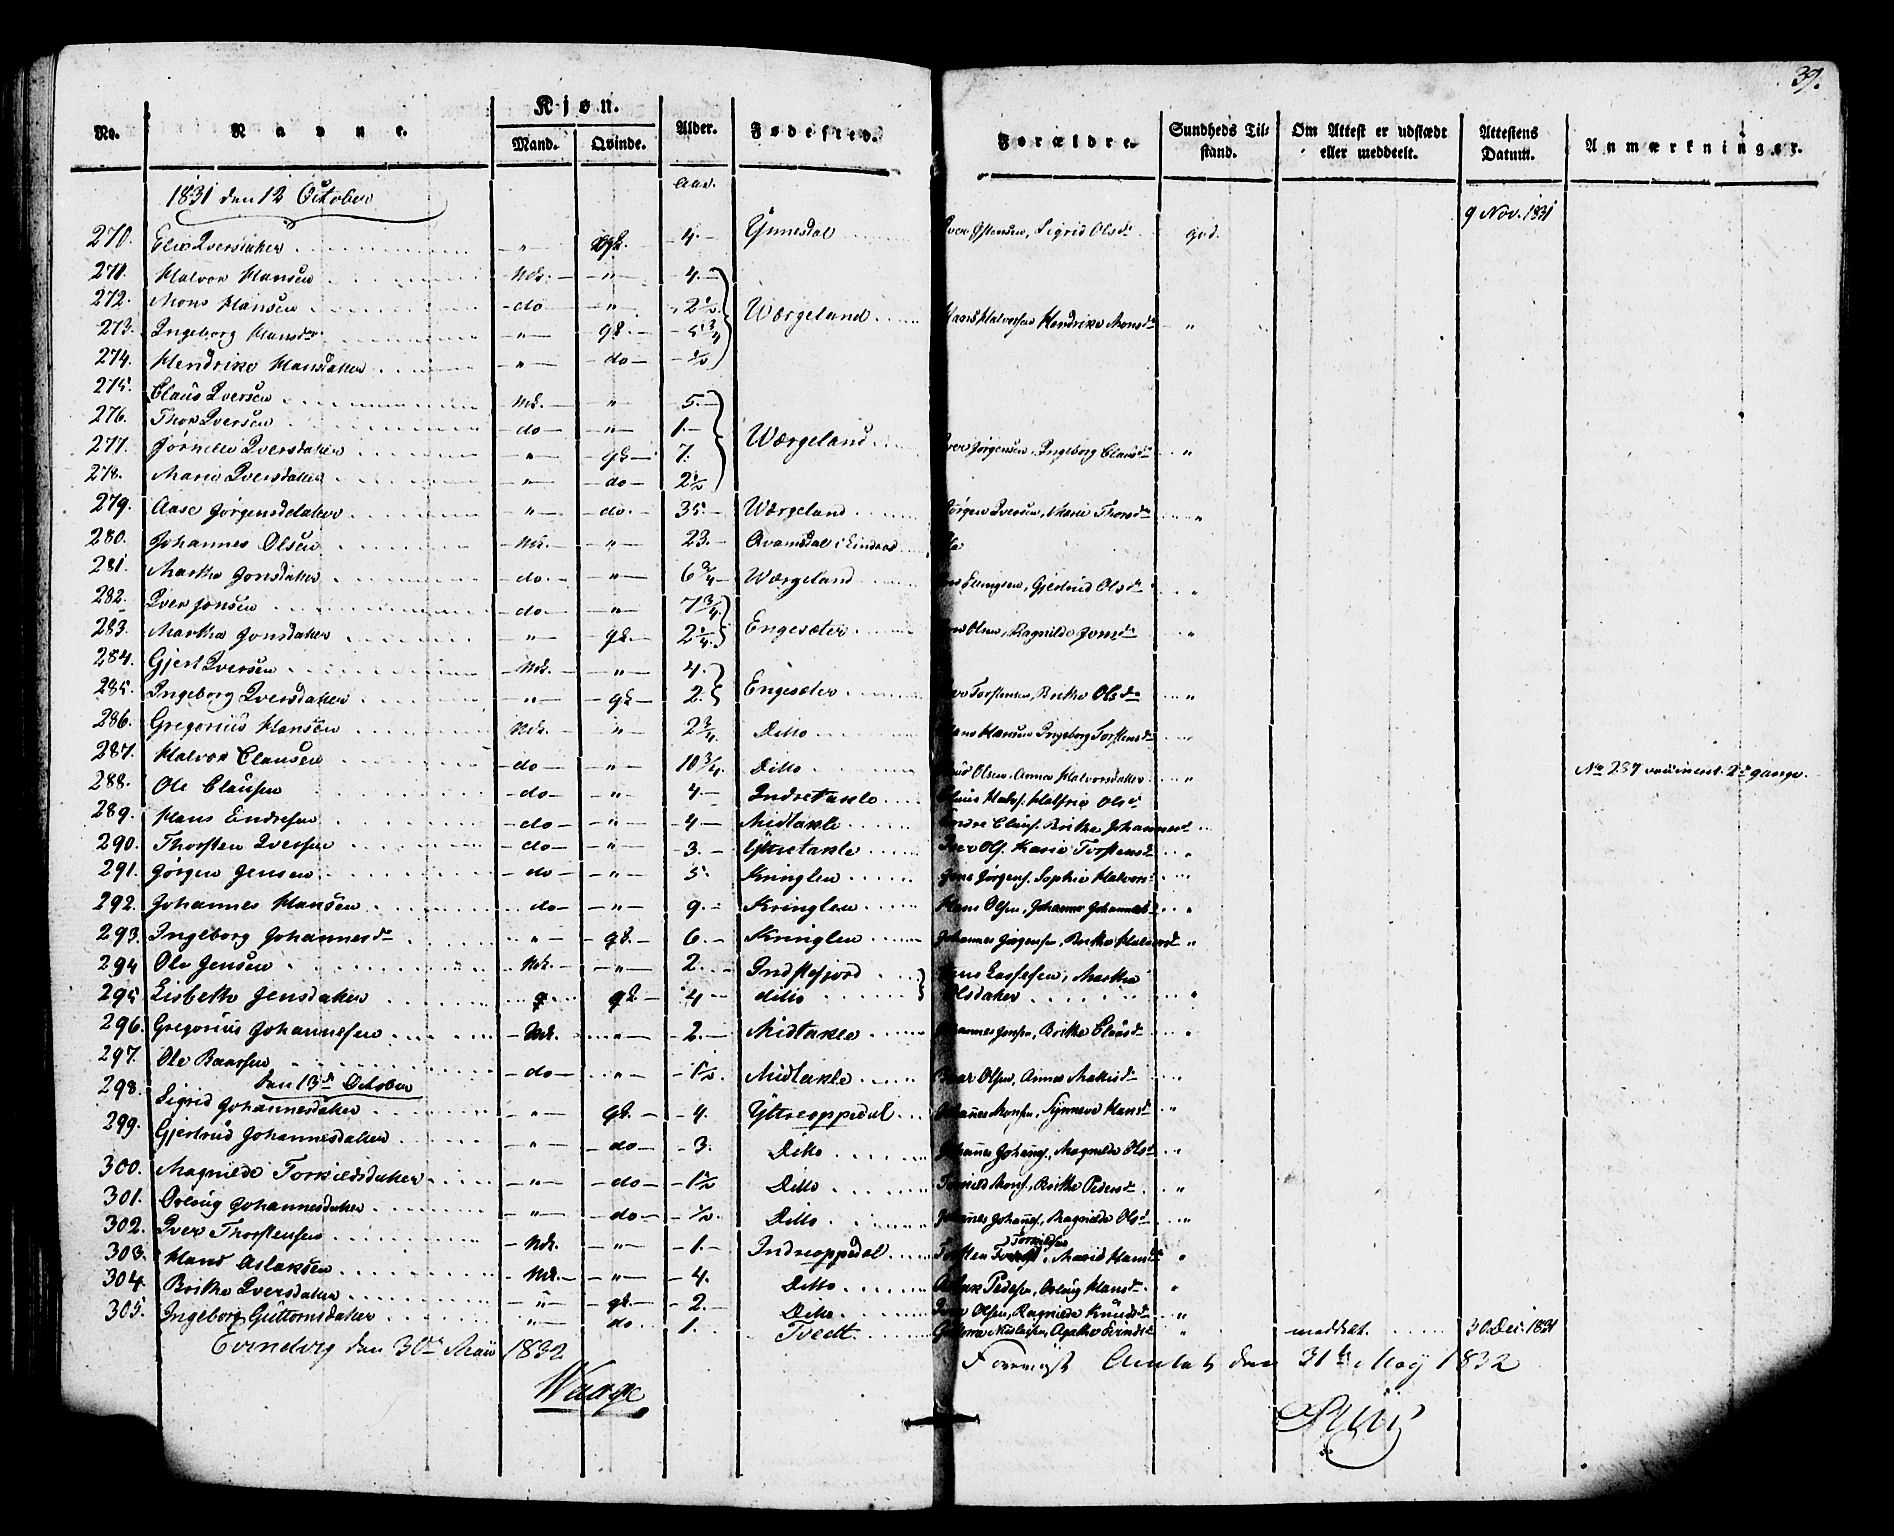 39.
No. Navne. Kjøn. Mand. Qvinde. Alder. Fødested. Forældre. Sundheds Tilstand. Om Attest er udstædt eller meddeelt. Attestens Datum. Anmærkninger.
1831 den 12 October Aar.
270. Iversdatter - " qk. - 4. - Ynnesdal Iver Ostensen, Sigrid Olsdr god. 9 Nov. 1831
271. Halvor Hansen Mk. - " - 4. -
272. Mons Hansen - do - " - 2½ Wærgeland Hans Halvorsen Hendrike Monsdr "
273. Ingeborg Hansdr - " - qk. - 5¾
274. Hendrike Hansdatter - " - do - ½
275. Claus Iversen Mk. - " - 5. -
276. Thor Iversen - do - " - 1. -
277. Jørnelle Iversdatter - " - qk - 7. Wærgeland Iver Jørgensen, Ingeborg Clausdr "
278. Marie Iversdatter - " - do - 2½
279. Aase Jørgensdatter - " - do. - 35. - Wærgeland Jørgen Iversen, Marie Thorsdr "
280. Johannes Olsen - Mk. - " - 23. - Qvamsdal i Eindaas
281. Martha Jonsdatter - do. - " - 6¾ - Wærgeland Gjertrud Olsdr "
282. Iver Jonsen - do - " - 7¾
283. Martha Jonsdatter - " - qk. - 2¼ Engesæter Olsen, Ragnilde Jonsdr "
284. Gjert Iversen - Mk. - " - 4.
285. Ingeborg Iversdatter - " - qk - 2. Engesæter Iver Torstensen, Brithe Olsdr "
286. Gregorius Hansen Mk. - " - 2¾ Ditto Hans Hansen Ingeborg Torstensdr "
287. Halvor Clausen - do - " - 10¾ Ditto Olsen, Anna Halvorsdatter " No 287 vaccineret 2de gange.
288. Ole Clausen - do - " - 4 - Indretakle Claus Olsdr
289. Hans Endresen - do - " - 4 - Midtakle Endre Claus. Brithe Johannesdr
290. Thorsten Iversen - do - " - 3. - Yttretakle Iver Ols. Kari Torstensd "
291. Jørgen Jensen - do - " - 5. Kringlen Jens Jørgens. Sophie Halvorsd "
292. Johannes Hansen do - " - 9. - Kringlen Hans Olsen, Johanne Johannesd "
293. Ingeborg Johannesdr " - qk. - 6. - Kringlen Johannes Jørgensen, Brithe Halvorsdr "
294 Ole Jensen Mk. - " - 2. Indstefjord Jens Lassesen, Martha
295 Lisbeth Jensdatter qk - 4 ditto Olsdatter "
296. Gregorius Johannesen - Mk. " - 2. - Midtakle Johannes Jensen, Brithe Clausdr "
297. Ole Baarsen - do - " - 1½. Midtakle Baar Olsen, Anna Mathisdr "
den 13de October
298. Sigrid Johannesdatter - " qk. - 4. Yttreoppedal Johannes Monsen, Synneve Hansdr "
299. Gjertrud Johannesdatter - " - do - 3. Ditto Johannes Johans., Magnilde Olsd "
300. Magnilde Torkildsdatter - " - do - 1½ Ditto Torkild Mons., Brithe Pedersdr "
301. Ovloug Johannesdatter - " - do - ½. Ditto Johannes Johans., Magnilde Olsd "
302. Iver Thorstensen - Mk. - " - 1. - Indreoppedal Torsten Torkildsen, Marid Hansdr "
303. Hans Aslaksen - Mk. - " - 4. Ditto Aslak Pedersen, Ovloug Hansdr "
304. Brithe Iversdatter - " - qk. - 2. - Ditto Iver Olsen, Ragnilde Knudsdr "
305. Ingeborg Guttormsdatter - " do - 1. Tvedt Guttorm Nielsen, Agathe Eriksd " meddelt. 30 Dec. 1831
Evindvig den 30te Mai 1832 Foreviist Amtet den 31te May 1832
Waage